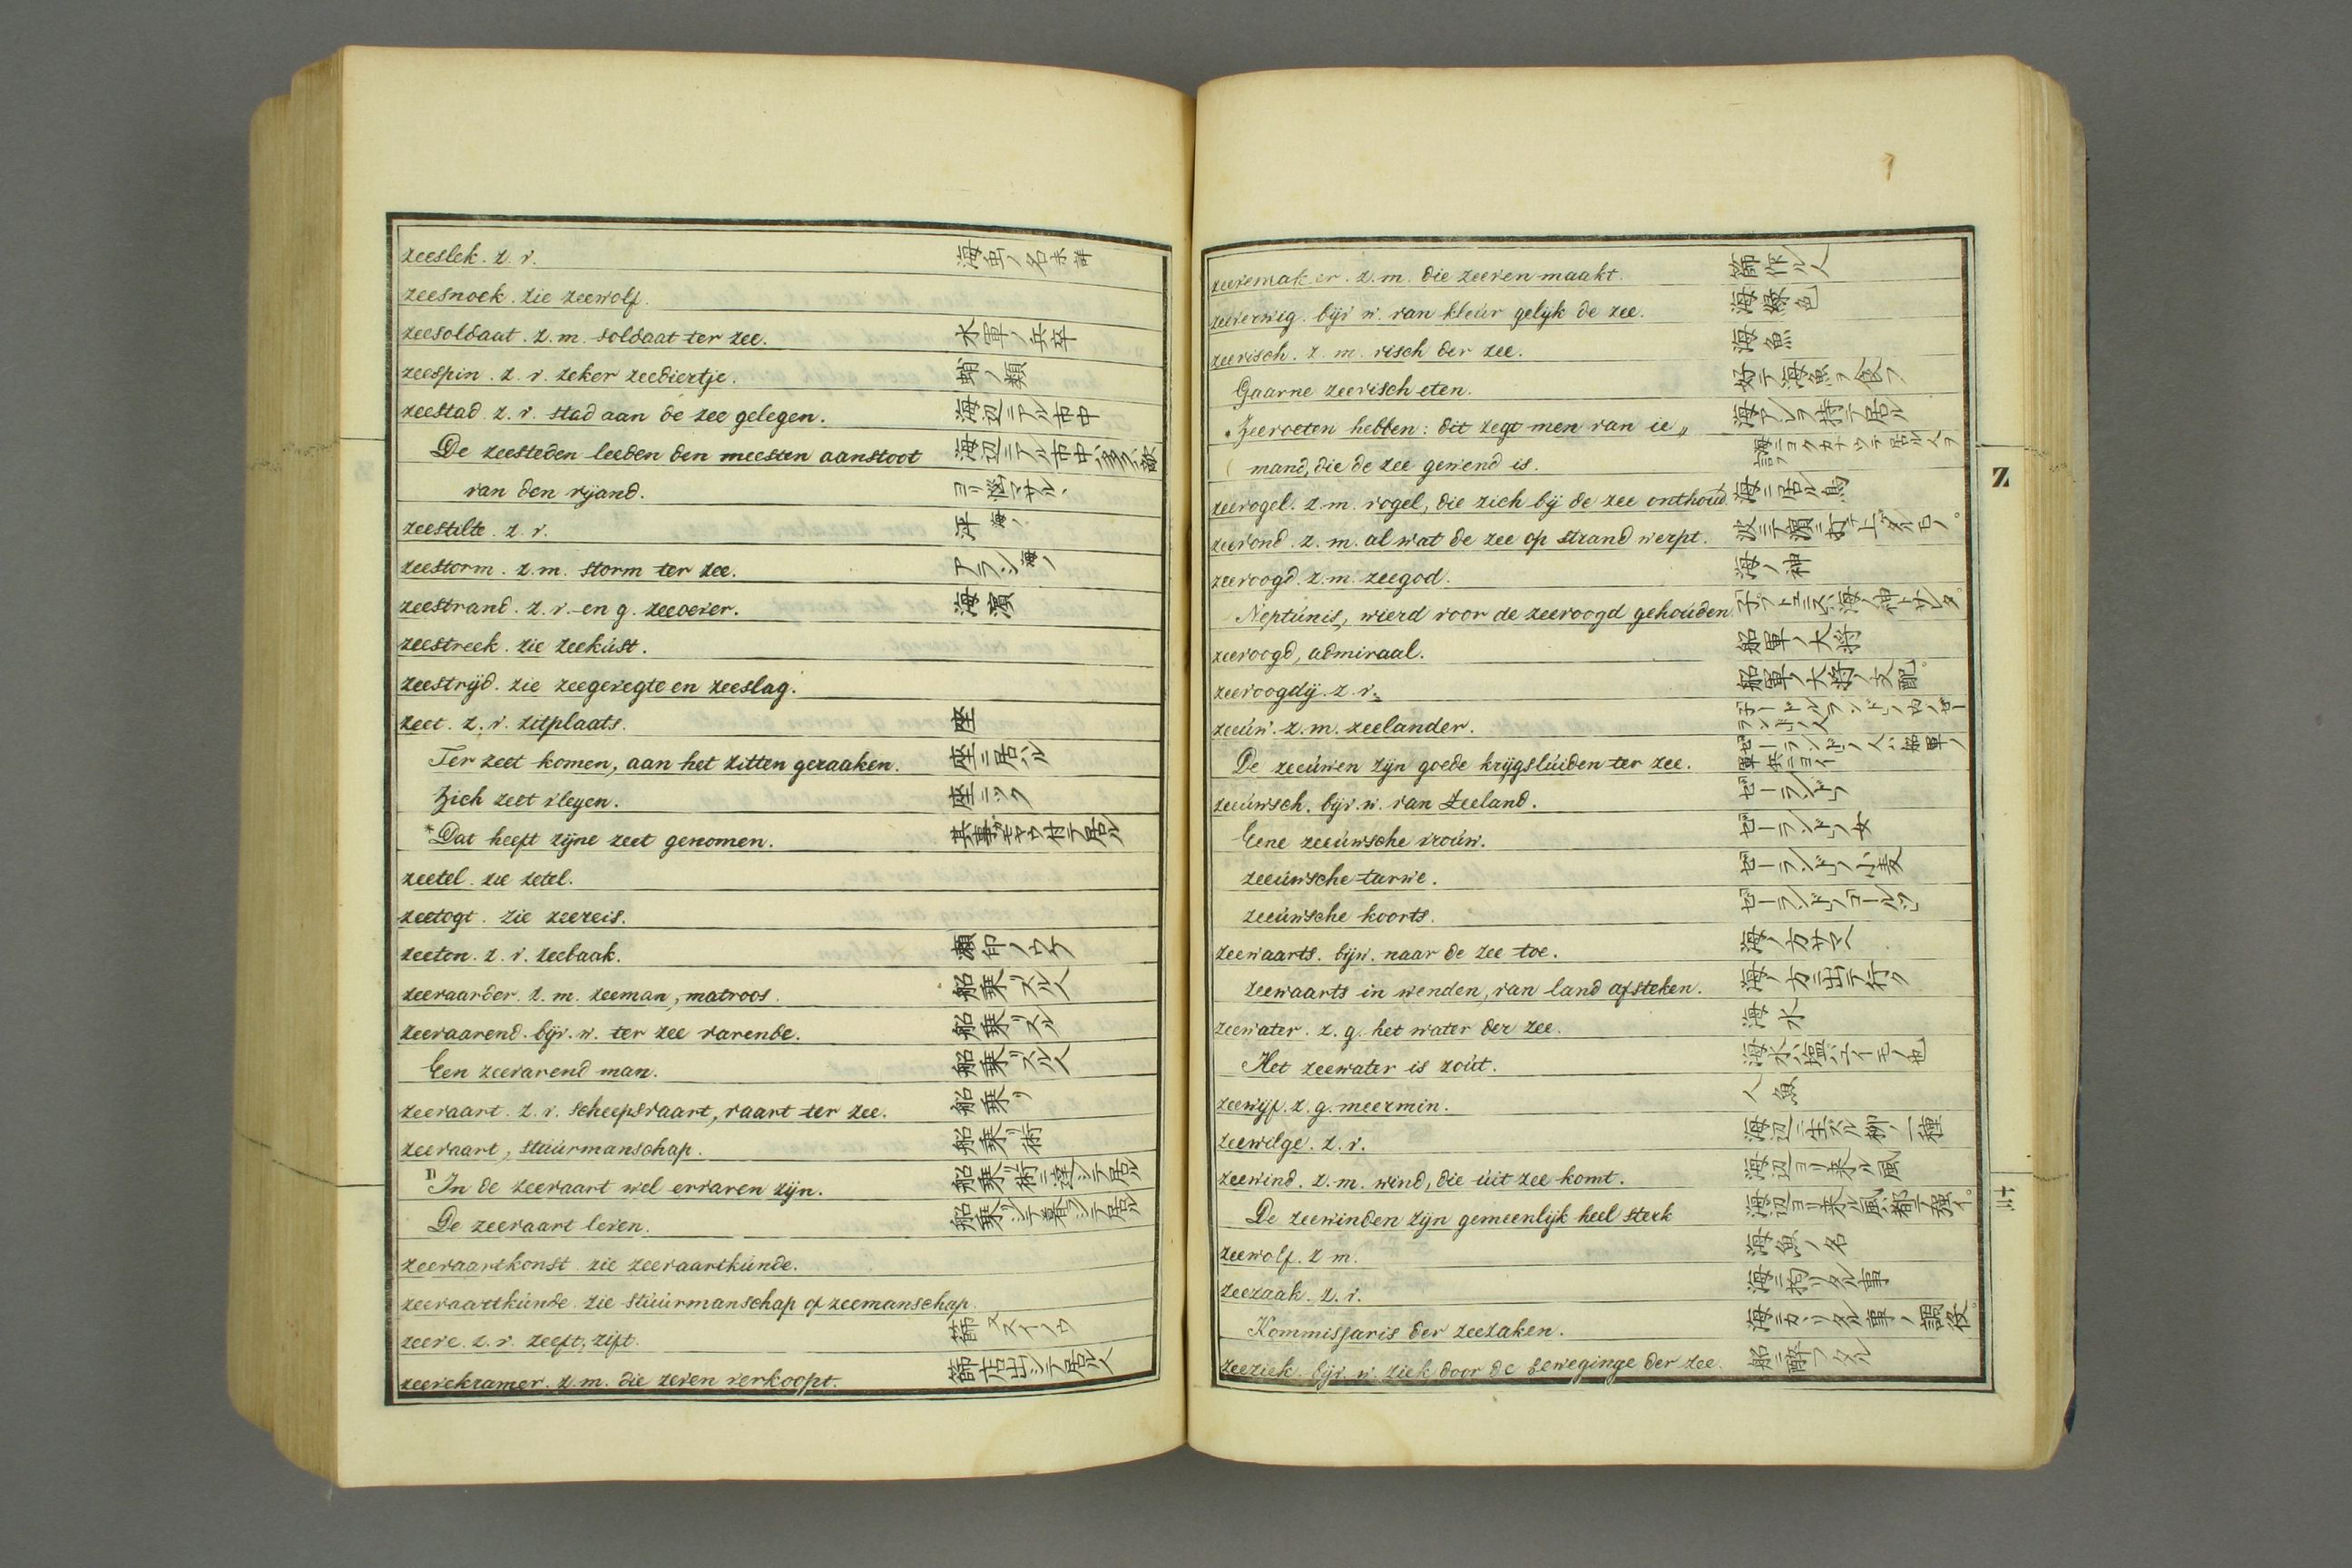 zeeslek. z. v. 海虫ノ名未詳
zeesnoek. zie zeewolf.
zeesoldaat. z. m. soldaat ter zee. 水軍ノ兵卒
zeespin. z. v. zeker zeediertje. 蛸ノ類
zeestad. z. v. stad aan de zee gelegen. 海辺ニアル市中
De zeesteden leeden den meesten aanstoot 海辺ニアル市中ハ多ク敵
van den vijand. ヨリ悩マサル、
zeestilte. z. v. 海ノ平
zeestorm. z. m. storm ter zee. 海ノアラシ
zeestrand. z. v. en g. zeeoever. 海濱
zeestreek. zie zeekúst.
zeestrijd. zie zeegevegte en zeeslag.
zeet. z. v. zitplaats. 座
Ter zeet komen, aan het zitten geraaken. 座ニ居ル
Zich zeet vlegen. 座ニツク
*Dat heeft zijne zeet genomen. 其事ガ居ル
zeetel. zie zetel.
zeetogt. zie zeereis.
zeeton. z. v. zeebaak. 瀬印ノウケ
zeevaarder. z. m. zeeman, matroos. 船乗リスル人
zeevaarend. bijv. w. ter zee varende. 船乗リスル
Een zeevarend man. 船乗リスル人
zeevaart. z. v. scheepsvaart, vaart ter zee. 船乗リ
zeevaart, stúúrmanschap. 船乗リ術
In de zeevaart wel ervaren zijn. 船乗リ術ニ達シテ居ル
De zeevaart leven. 船乗リシテ暮シテ居ル
zeevaartkonst. zie zeevaartkúnde.
zeevaartkúnde. zie stúúrmanschap of zeemanschap.
zeeve. z. v. zeeft, zift. 篩 スイノウ
zeevekramer. z. m. die zeven verkoopt. 篩店出シテ居ル人
zeevemaker. z. m. die zeeven maakt. 篩作ル人
zeeverwig. bijv. w. van kleúr gelijk de zee. 海緑色
zeevisch. z. m. visch der zee. 海魚
Gaarne zeevisch eten. 好テ海魚ヲ食フ
Zeevoeten hebben: dit zegt men van ie„ 海アレヲ居ル
mand, die de zee gewend is.
zeevogel. z. m. vogel, die zich bij de zee onthoud. 海ニ居ル鳥
zeevond. z. m. al wat de zee op strand werpt. 波ニテ濱ニ打上ゲタルモノ。
zeevoogd. z. m. zeegod. 海ノ神
Neptúnis, wierd voor de zeevoogd gehoúden.
zeevoogd, admiraal. 船軍ノ大将
zeevoogdij. z. v. 船軍ノ大将ノ支配。
zeeúw. z. m. zeelander.
De zeeúwen zijn goede krijgslúiden ter zee.
zeeúwsch. bijv. w. van Zeeland. ゼーランドノ
Eene zeeúwsche vroúw. ゼーランドノ女
zeeúwsche tarwe. ゼーランドノ小麦
zeeúwsche koorts. ゼーランドノコールツ
zeewaarts. bijw. naar de zee toe. 海ノ方サマヘ
zeewaarts in wenden, van land afsteken. 海ノ方ニ出テ行ク
zeewater. z. g. het water der zee. 海水
Het zeewater is zoút. 海水ハ塩ハユイモノ也
zeewijf. z. g. meermin. 人魚
zeewilge. z. v. 海辺ニ生ズル柳ノ一種
zeewind. z. m. wind, die úit zee komt. 海辺ヨリ来ル風
De zeewinden zijn gemeenlijk heel sterk 海辺ヨリ来ル風ハ都テ強イ。
zeewolf. z. m. 海魚ノ名
zeezaak. z. v. 海ニ拘リタル事
Kommissaris der zeezaken. 海ニカヽリタル事ノ調役。
zeeziek. bijv. w. ziek door de beweginge der zee. 船ニ酔フタル
Z